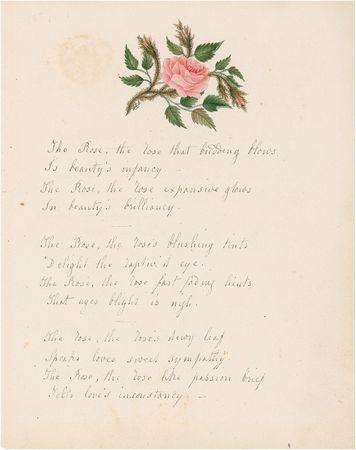 The Rose, the rose that budding blows
Is beauty's infancy -
The Rose, the rose expansive glows
In beauty's brilliancy -
The Rose, the rose's blushing tints
Delight the raptur'd eye.
The Rose, the rose fast fading hints
That ages blight is nigh.
The rose, the rose's dewy leaf
Speaks loves sweet sympathy
The Rose, the rose like passion brief
Tells love's inconstancy. -